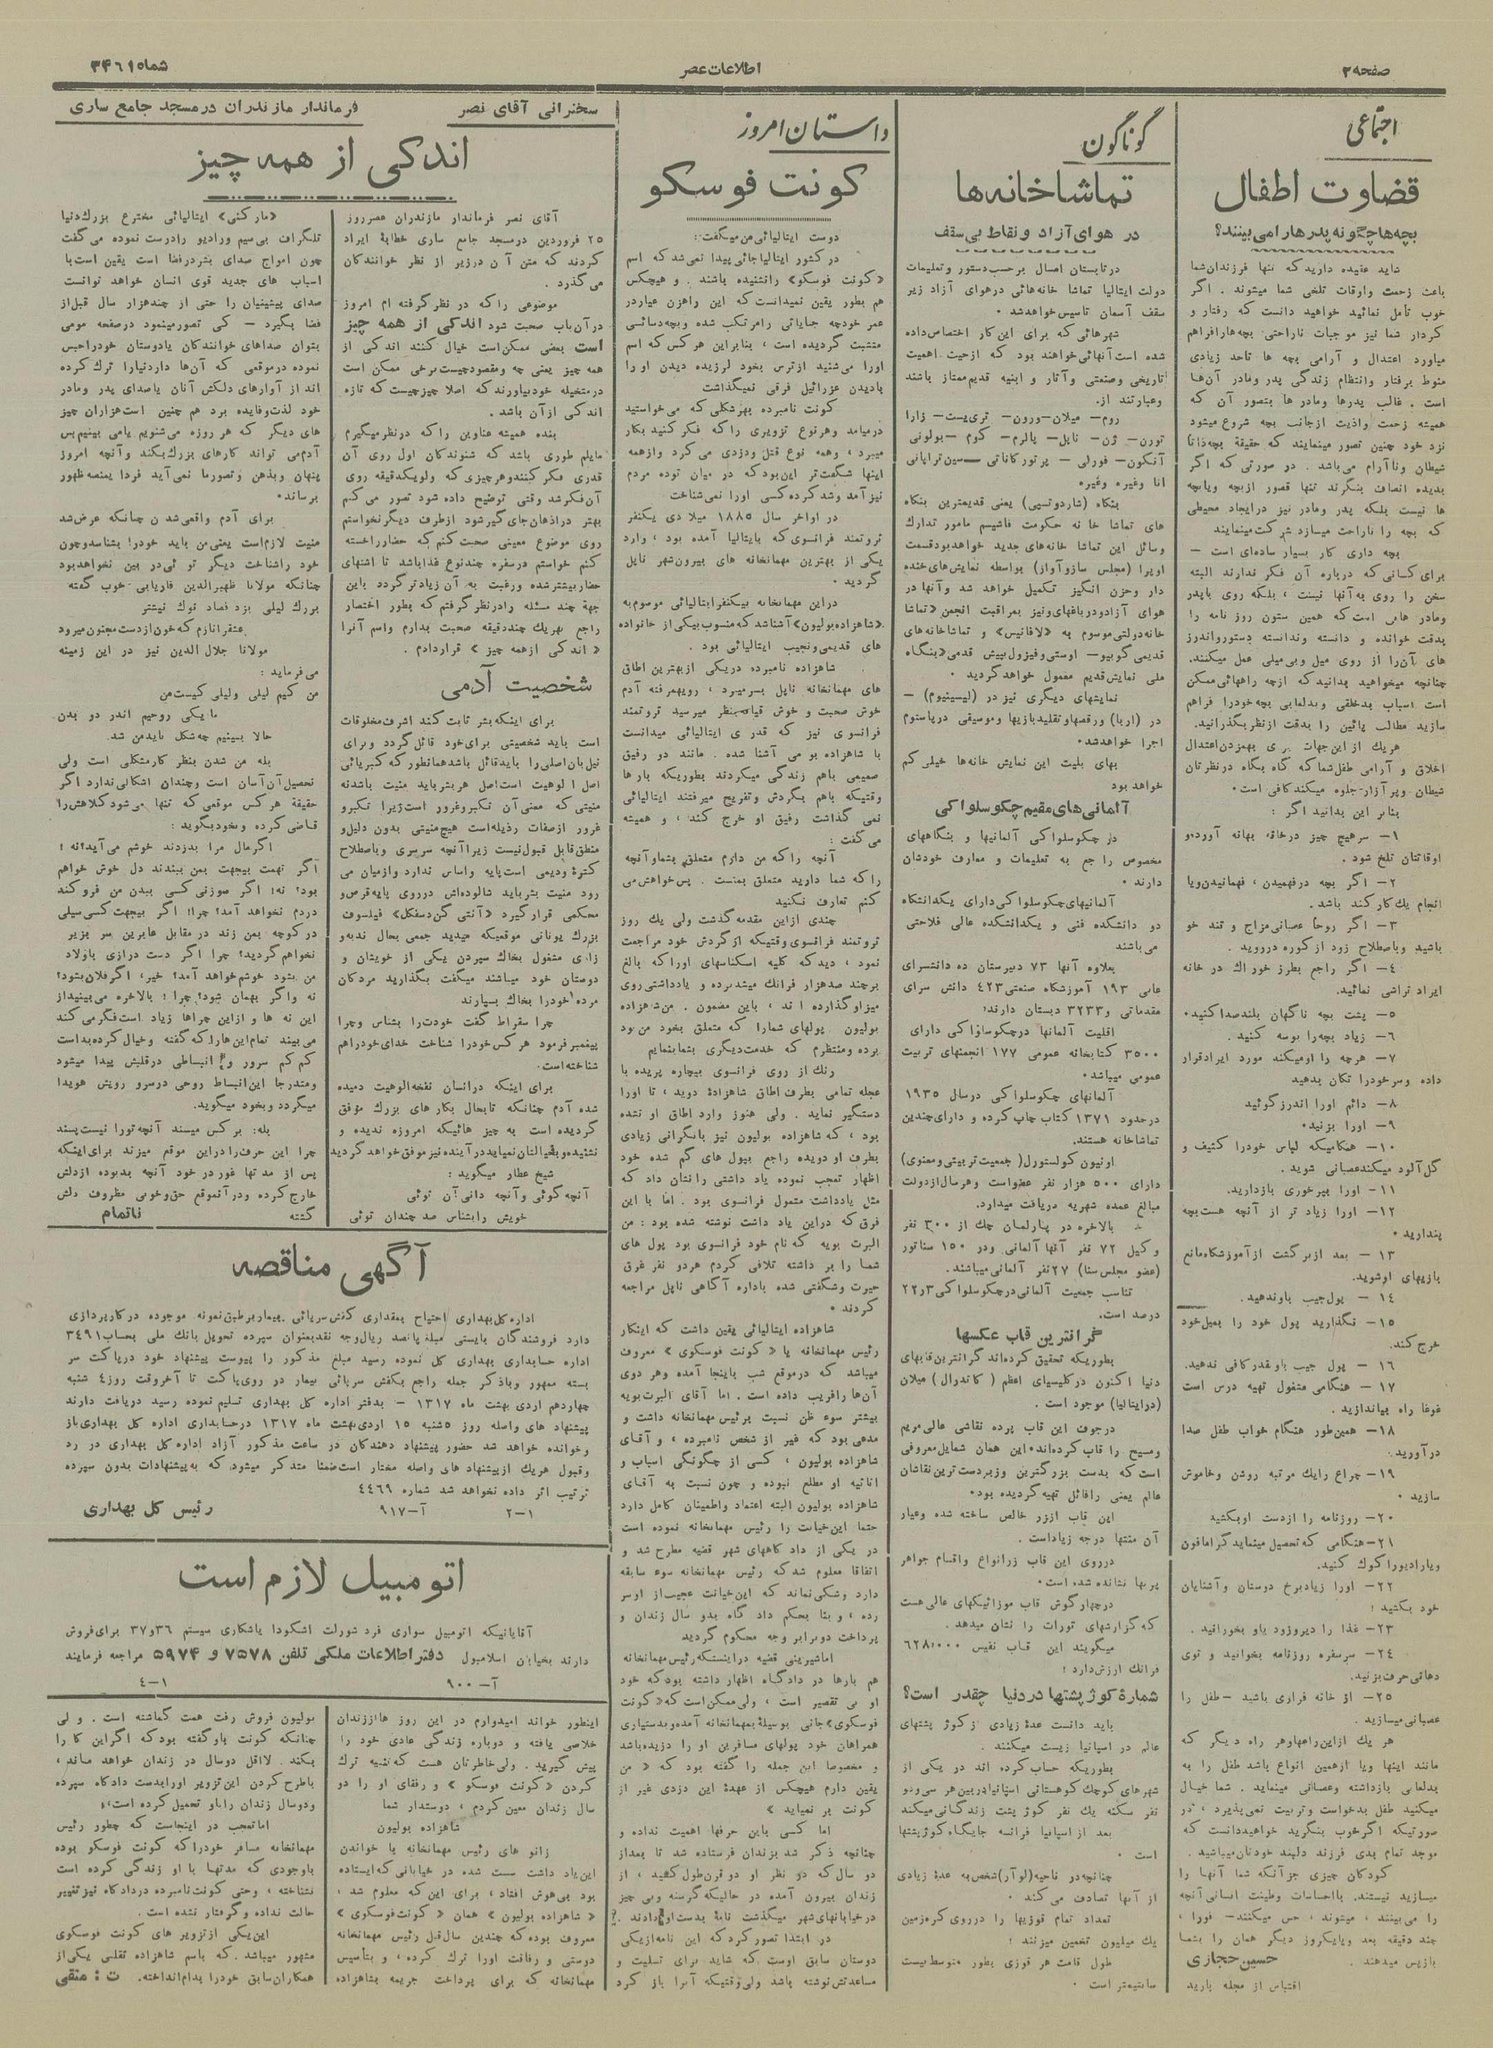 صفحه ۲
اطلاعات عصر
شماره ۳۴۶۱
اجتماعی
قضاوت اطفال
بچه‌ها چگونه پدرها را می‌بینند؟
شاید عقیده دارید که تنها فرزندان شما
باعث زحمت و اوقات تلخی شما میشوند . اگر
خوب تأمل نمائید خواهید دانست که رفتار و
کردار شما نیز موجبات ناراحتی بچه‌ها را فراهم
میآورد اعتدال و آرامی بچه ها تاحد زیادی
منوط برفتار وانتظام زندگی پدر ومادر آن‌ها
است . غالب پدرها ومادر ها بتصور آن که
همیشه زحمت واذیت ازجانب بچه شروع میشود
نزد خود چنین تصور مینمایند که حقیقة بچه ذاتاً
شیطان وناآرام می‌باشد . در صورتی که اگر
بدیده انصاف بنگرند تنها قصور ازبچه ویابچه
ها نیست بلکه پدر ومادر نیز درایجاد محیطی
که بچه را ناراحت میسازد شرکت مینمایند
بچه داری کار بسیار ساده‌ای است –
برای کسانی که درباره آن فکر ندارند البته
سخن را روی به آنها نیست ، بلکه روی باپدر
ومادر هایی است که همین ستون روز نامه را
بدقت خوانده و دانسته وندانسته دستور واندرز
های آن‌را از روی میل وبی‌میلی عمل میکنند.
چنانچه میخواهید بدانید که ازچه راههائی ممکن
است اسباب بدخلقی وبدلعابی بچه خودرا فراهم
سازید مطالب پائین را بدقت ازنظر بگذرانید.
هریک از این جهات برای بهم‌زدن اعتدال
اخلاق و آرامی طفل شما که گاه بگاه درنظرتان
شیطان وپر آزار جلوه میکند کافی است.
بنابر این بدانید اگر :
۱– سرهیچ چیز درخانه بهانه آورده و
اوقاتتان تلخ شود .
۲– اگر بچه درفهمیدن ، فهمانیدن ویا
انجام یک کار کند باشد .
۳– اگر روحاً عصبانی مزاج و تند خو
باشید وباصطلاح زود از کوره در روید .
۴– اگر راجع بطرز خوراک در خانه
ایراد تراشی نمائید.
۵– پشت بچه ناگهان بلند صدا کنید.
۶– زیاد بچه‌را بوسه کنید .
۷– هرچه را او میکند مورد ایراد قرار
داده وسر خودرا تکان بدهید
۸– دائم اورا اندرز گوئید
۹– اورا بزنید.
۱۰– هنگامیکه لباس خودرا کثیف و
گل‌آلود میکند عصبانی شوید .
۱۱– اورا بپرخوری بازدارید.
۱۲– اورا زیاد تر از آنچه هست بچه
پندارید .
۱۳ – بعد ازبرگشت از آموزشگاه مانع
بازیهای او شوید.
۱۴ – پول جیب باو ندهید.
۱۵– نگذارید پول خود را بمیل خود
خرج کند.
۱۶ – پول جیب باو بقدر کافی ندهید.
۱۷ – هنگامی مشغول تهیه درس است
غوغا راه بیاندازید .
۱۸– همین‌طور هنگام خواب طفل صدا
درآورید.
۱۹– چراغ رایک مرتبه روشن وخاموش
سازید .
۲۰– روزنامه را ازدست او بکشید
۲۱– هنگامی که تحصیل مینماید گرامافون
ویارادیو را کوک کنید.
۲۲– اورا زیاد برخ دوستان و آشنایان
خود بکشید؛
۲۳– غذا را دیروزود باو بخورانید .
۲۴– سرسفره روزنامه بخوانید و توی
دهانی حرف بزنید.
۲۵– از خانه فراری باشید –طفل را
عصبانی میسازید .
هر یک از این راهها و هر راه دیگر که
مانند اینها ویا ازهمین انواع باشد طفل را به
بدلعابی بازداشته وعصبانی مینماید . شما خیال
میکنید طفل بدخواست وتربیت نمی‌پذیرد ، در
صورتیکه اگر خوب بنگرید خواهید دانست که
موجد تمام بدی فرزند دلبند خودتان میباشید .
کودکان چیزی جز آنکه شما آنها را
میسازید نیستند. بااحساسات وطینت انسانی آنچه
را می‌بینند ، میشوند ، حس میکنند– فوراً ،
چند دقیقه بعد ویایکروز دیگر همان را بشما
بازپس میدهند .
حسین حجازی
اقتباس از مجله بارید
گوناگون
تماشاخانه‌ها
در هوای آزاد و نقاط بی‌سقف
درتابستان امسال برحسب دستور وتعلیمات
دولت ایتالیا تماشا خانه‌هائی درهوای آزاد زیر
سقف آسمان تاسیس خواهد شد .
شهرهائی که برای این کار اختصاص داده
شده است آنهائی خواهند بود که ازحیث اهمیت
تاریخی وصنعتی و آثار و ابنیه قدیم ممتاز باشند
وعبارتند از.
روم– میلان–ورون– تری‌یست– زارا
تورن– ژن– ناپل– پالرم– کوم –بولونی
آنکون– فورلی – پرتور کاناتی –سین‌تراپانی
انا وغیره وغیره
بنگاه (شاردوتسبی) یعنی قدیمترین بنگاه
های تماشا خانه حکومت فاشیسم مامور تدارک
وسائل این تماشا خانه‌های جدید خواهد بود قسمت
اوپرا (مجلس سازوآواز) بواسطه نمایش‌های خنده
دار وحزن انگیز تکمیل خواهد شد و آنها در
هوای آزاد و درباغهای ونیز بمراقبت انجمن «تماشا
خانه دولتی موسوم به «لافانیس» و تماشاخانه‌های
قدیمی گوبیو– اوستی وفیزول پیش قدمی «بنگاه
ملی نمایش قدیم معمول خواهد گردید .
نمایشهای دیگری نیز در (لیسینیوم) –
در (اربا) ورقصها وتقلید بازیها وموسیقی در پاستوم
اجرا خواهد شد.
بهای بلیت این نمایش خانه‌ها خیلی کم
خواهد بود
آلمانی‌های مقیم چکوسلواکی
در چکوسلواکی آلمانیها و بنگاههای
مخصوص راجع به تعلیمات و معارف خودشان
دارند .
آلمانیهای چکوسلواکی دارای یکدانشگاه
دو دانشکده فنی و یکدانشکده عالی فلاحتی
می باشند
بعلاوه آنها ۷۳ دبیرستان ده دانشسرای
عامی ۱۹۳ آموزشگاه صنعتی ۴۲۳ دانش سرای
مقدماتی و ۳۲۳۳ دبستان دارند؛
اقلیت آلمانها درچکوسلواکی دارای
۳۵۰۰ کتابخانه عمومی ۱۷۷ انجمنهای تربیت
عمومی میباشد.
آلمانهای چکوسلواکی درسال ۱۹۳۵
درحدود ۱۳۷۱ کتاب چاپ کرده و دارای چندین
تماشاخانه هستند.
اونیون کولستورل( جمعیت تربیتی ومعنوی)
دارای ۵۰۰ هزار نفر عضو است و هرسال ازدولت
مبالغ عمده شهریه دریافت میدارد.
بالاخره در پارلمان چک از ۳۰۰ نفر
وکیل ۷۲ نفر آنها آلمانی ودر ۱۵۰ سناتور
(عضو مجلس سنا) ۲۷نفر آلمانی میباشند.
تناسب جمعیت آلمانی درچکوسلواکی ۲۲٫۳
درصد است.
گرانترین قاب عکسها
بطوریکه تحقیق کرده‌اند گرانترین قابهای
دنیا اکنون درکلیسای اعظم (کاتدرال) میلان
(درایتالیا) موجود است .
درجوف این قاب پرده نقاشی عالی مریم
ومسیح را قاب کرده‌اند. این همان شمایل معروفی
است که بدست بزرگترین وزبردست‌ترین نقاشان
عالم یعنی رافائل تهیه گردیده بود.
این قاب اززر خالص ساخته شده وعیار
آن منتها درجه زیاد است.
درروی این قاب زرانواع واقسام جواهر
پربها نشانده شده است.
درچهار گوش قاب موزائیکهای عالی هست
که گزارشهای تورات را نشان میدهد .
میگویند این قاب نفیس ۶۲۸۰۰۰۰
فرانک ارزش دارد ؛
شمارهٔ کوژ پشتها در دنیا چقدر است؟
باید دانست عدهٔ زیادی از کوژ پشتهای
عالم در اسپانیا زیست میکنند .
بطوریکه حساب کرده اند در یکی از
شهرهای کوچک کوهستانی اسپانیا در بین هر سی‌ودو
نفر سکنه یک نفر کوژ پشت زندگانی میکند
بعد از اسپانیا فرانسه جایگاه کوژ پشتها
است .
چنانچه در ناحیه (لوآر) شخص به عدهٔ زیادی
از آنها تصادف می‌کند .
تعداد تمام قوزیها را در روی کره زمین
یک میلیون تخمین میزنند ؛
طول قامت هر قوزی بطور متوسط بیست
سانتیمتر است .
داستان امروز
کونت فوسکو
دوست ایتالیائی من میگفت:
در کشور ایتالیا جائی پیدا نمی‌شد که اسم
«کونت فوسکو» رانشنیده باشند . و هیچکس
هم بطور یقین نمیدانست که این راهزن عیار در
عمر خود چه جنایاتی را مرتکب شده و بچه دسائسی
متشبث گردیده است ، بنابراین هرکس که اسم
اورا می‌شنید ازترس بخود لرزیده دیدن او را
بادیدن عزرائیل فرقی نمیگذاشت
کونت نامبرده بهرشکلی که می‌خواستید
درمیامد وهرنوع تزویری را که فکر کنید بکار
میبرد ، وهمه نوع قتل ودزدی می کرد وازهمه
اینها شگفت‌تر این بود که در میان توده مردم
نیز آمد وشد کرده کسی اورا نمی‌شناخت .
در اواخر سال ۱۸۸۵ میلادی یکنفر
ثروتمند فرانسوی که بایتالیا آمده بود ، وارد
یکی از بهترین مهمانخانه های بیرون شهر ناپل
گردید .
دراین مهمانخانه بیکنفر ایتالیائی موسوم به
«شاهزاده بولیون» آشنا شد که منسوب بیکی از خانواده
های قدیمی ونجیب ایتالیائی بود .
شاهزاده نامبرده دریکی ازبهترین اطاق
های مهمانخانه ناپل بسر میبرد ، رویهمرفته آدم
خوش صحبت و خوش قیافه بنظر میرسید ثروتمند
فرانسوی نیز که قدری ایتالیائی میدانست
با شاهزاده بومی آشنا شده . مانند دو رفیق
صمیمی باهم زندگی میکردند بطوریکه بارها
وقتیکه باهم بگردش وتفریح میرفتند ایتالیائی
نمی گذاشت رفیق او خرج کند ، و همیشه
می گفت :
آنچه راکه من دارم متعلق بشما و آنچه
را که شما دارید متعلق بمنست . پس خواهش می
کنم تعارف نکنید
چندی ازاین مقدمه گذشت ولی یک روز
ثروتمند فرانسوی وقتیکه ازگردش خود مراجعت
نمود ، دید که کلیه اسکناسهای اورا که بالغ
برچند صد هزار فرانک میشد برده و یادداشتی روی
میز او گذارده اند ، باین مضمون . من شاهزاده
بولیون پولهای شمارا که متعلق بخود من بود
برده ومنتظرم که خدمت دیگری بشما بنمایم
رنگ از روی فرانسوی بیچاره پریده با
عجله تمامی بطرف اطاق شاهزاده دوید ، تا اورا
دستگیر نماید . ولی هنوز وارد اطاق او نشده
بود ، که شاهزاده بولیون نیز بانگرانی زیادی
بطرف او دویده راجع بپول های گم شده خود
اظهار تعجب نموده یاد داشتی را نشان داد که
مثل یادداشت متمول فرانسوی بود . اما با این
فرق که دراین یاد داشت نوشته شده بود : من
آلبرت بویه که نام خود فرانسوی بود پول های
شما را بر داشته تلافی کردم هردو نفر غرق
حیرت وشگفتی شده باداره آگاهی ناپل مراجعه
کردند .
شاهزاده ایتالیائی یقین داشت که اینکار
رئیس مهمانخانه یا «کونت فوسکوی» معروف
میباشد که درموقع شب باینجا آمده وهر دوی
آن‌ها رافریب داده است . اما آقای آلبرت بویه
بیشتر سوء ظن نسبت برئیس مهمانخانه داشت و
مدعی بود که غیر از شخص نامبرده ، و آقای
شاهزاده بولیون ، کسی از چگونگی اسباب و
اثاثیه او مطلع نبوده و چون نسبت به آقای
شاهزاده بولیون البته اعتماد واطمینان کامل دارد
حتما این خیانت را رئیس مهمانخانه نموده است
در یکی از داد گاههای شهر قضیه مطرح شد و
اتفاقاً معلوم شد که رئیس مهمانخانه سوء سابقه
دارد وشکی نماند که این خیانت عجیب از او سر
زده ، و بنا بحکم داد گاه بدو سال زندان و
پرداخت دو برابر وجه محکوم گردید
اما شیرینی قضیه دراینستکه رئیس مهمانخانه
هم بارها در دادگاه اظهار داشته بود که خود
او بی تقصیر است ، ولی ممکن است که «کونت
فوسکوی» جانی بوسیلهٔ بمهمانخانه آمده و بدستیاری
همراهان خود پولهای مسافرین او را دزدیده باشد
و مخصوصاً این جمله را گفته بود که « من
یقین دارم هیچکس از عهدهٔ این دزدی غیر از
کونت بر نمیاید »
اما کسی باین حرفها اهمیت نداده و
چنانچه ذکر شد بزندان فرستاده شد تا بعد از
دو سال که دو نظر او دو قرن طول کشید ، از
زندان بیرون آمده در حالیکه گرسنه وبی چیز
درخیابانهای شهر میگذشت نامهٔ بدست او دادند .
در ابتدا تصور کرد که این نامه ازیکی
دوستان سابق اوست که شاید برای تسلیت و
مساعدتش نوشته باشد ولی وقتیکه آنرا باز کرد
سخنرانی آقای نصر
فرماندار مازندران در مسجد جامع ساری
اندکی از همه چیز
آقای نصر فرماندار مازندران عصر روز
۲۵ فروردین در مسجد جامع ساری خطابهٔ ایراد
کردند که متن آن درزیر از نظر خوانندگان
می گذرد .
موضوعی را که در نظر گرفته ام امروز
در آن باب صحبت شود اندکی از همه چیز
است بعضی ممکن است خیال کنند اندکی از
همه چیز یعنی چه ومقصود چیست برخی ممکن است
در متخیله خود بیاورند که اصلا چیز چیست که تازه
اندکی از آن باشد .
بنده همیشه عناوین را که درنظر میگیرم
مایلم طوری باشد که شنوندگان اول روی آن
قدری فکر کنند و هر چیزی که ولو یکدقیقه روی
آن فکر شد وقتی توضیح داده شود تصور می کنم
بهتر در اذهان جای گیر شود ازطرف دیگر نخواستم
روی موضوع معینی صحبت کنم که حضار را خسته
کنم خواستم درسفره چند نوع غذا باشد تا اشتهای
حضار بیشتر شده ورغبت به آن زیادتر گردد باین
جهة چند مسئله را در نظر گرفتم که بطور اختصار
راجع بهر یک چند دقیقه صحبت بدارم واسم آنرا
« اندکی ازهمه چیز » قرار دادم .
شخصیت آدمی
برای اینکه بشر ثابت کند اشرف مخلوقات
است باید شخصیتی برای خود قائل گردد و برای
نیل بان اصلی را باید قائل باشد همانطور که کبریائی
اصل الوهیت است اصل هر بشر باید منیت باشد نه
منیتی که معنی آن تکبر و غرور است زیرا تکبر و
غرور از صفات رذیله است هیچ منیتی بدون دلیل و
منطق قابل قبول نیست زیرا آنچه سرسری و باصطلاح
کتره ودیمی است پایه واساس ندارد وازمیان می
رود منیت بشر باید شالوده‌اش درروی پایه قرص و
محکمی قرار گیرد «آنتی گن دسفکل» فیلسوف
بزرگ یونانی موقعیکه میدید جمعی بحال ندبه و
زاری مشغول بخاک سپردن یکی از خویشان و
دوستان خود میباشند میگفت بگذارید مردگان
مرده خودرا بخاک بسپارند
چرا سقراط گفت خودت را بشناس وچرا
پیغمبر فرمود هر کس خودرا شناخت خدای خودرا هم
شناخته است.
برای اینکه در انسان نفخه الوهیت دمیده
شده آدم چنانکه تابحال بکار های بزرگ موفق
گردیده است به چیز هائیکه امروزه ندیده و
نشنیده و بخیالتان نمیاید در آینده نیز موفق خواهد گردید
شیخ عطار میگوید :
آنچه گوئی وآنچه دانی آن توئی
خویش را بشناس صد چندان توئی
«مارکنی» ایتالیائی مخترع بزرک دنیا
تلگراف بی‌سیم و رادیو را درست نموده می گفت
چون امواج صدای بشر در فضا است یقین است با
اسباب های جدید قوی انسان خواهد توانست
صدای پیشینیان را حتی از چند هزار سال قبل از
فضا بگیرد – کی تصور مینمود در صفحه مومی
بتوان صداهای خوانندگان یادوستان خود را حبس
نموده در موقعی که آن‌ها دار دنیا را ترک کرده
اند از آوازهای دلکش آنان یاصدای پدر ومادر
خود لذت وفایده برد هم چنین است هزاران چیز
های دیگر که هر روزه می‌شنویم یامی بینیم پس
آدمی می تواند کارهای بزرک بکند و آنچه امروز
پنهان و بذهن وتصور ما نمی‌آید فردا بمنصه ظهور
برساند.
برای آدم واقعی شدن چنانکه عرض شد
منیت لازم است یعنی من باید خودرا بشناسد وچون
خود را شناخت دیگر تو ئی در بین نخواهد بود
چنانکه مولانا ظهیرالدین فاریابی خوب گفته
بررک لیلی بزد فصاد نوک نیشتر
عشق را نازم که خون ازدست مجنون میرود
مولانا جلال الدین نیز در این زمینه
می فرماید :
من کیم لیلی ولیلی کیست من
ما یکی روحیم اندر دو بدن
حالا ببینیم چه شکل باید من شد.
بله من شدن بنظر کار مشکلی است ولی
تحصیل آن آسان است وچندان اشکالی ندارد اگر
حقیقة هر کس موقعی که تنها می شود کلاهش را
قاضی کرده و بخود بگوید :
اگر مال مرا بدزدند خوشم می‌آید؟ نه !
اگر تهمت بیجهت بمن ببندند دل خوش خواهم
بود؟ نه؛ اگر سوزنی کسی ببدن من فرو کند
دردم نخواهد آمد؟ چرا؛ اگر بیجهت کسی سیلی
در کوچه بمن زند در مقابل عابرین سر بزیر
نخواهم گردید؟ چرا اگر دست درازی باولاد
من بشود خوشم خواهد آمد؟ خیر، اگر فلان بشود؟
نه و اگر بهمان شود؟ چرا ؛ بالاخره می‌بینید از
این نه ها و ازاین چراها زیاد است فکر می کند
می بیند تمام این ها را که گفته وخیال کرده بد است
کم کم سرور و انبساطی درقلبش پیدا میشود
ومتدرجا این انبساط روحی درسر و رویش هویدا
میگردد وبخود میگوید.
بله: بر کس مپسند آنچه تورا نیست پسند
چرا این حرف را در این موقع میزند برای اینکه
پس از مدتها غور در خود آنچه بد بوده ازدلش
خارج کرده ودر آن موقع حق وخوبی مظروف دلش
گشته ناتمام
آگهی مناقصه
اداره کل بهداری احتیاج بمقداری کفش سرپائی بیمار برطبق نمونه موجوده در کار پردازی
دارد فروشندگان بایستی مبلغ پانصد ریال وجه نقد بعنوان سپرده تحویل بانک ملی بحساب ۳۴۹۱
اداره حسابداری بهداری کل نموده رسید مبلغ مذکور را پیوست پیشنهاد خود در پاکت سر
بسته ممهور وباذکر جمله راجع بکفش سرپائی بیمار در روی پاکت تا آخر وقت روز ۴ شنبه
چهاردهم اردی بهشت ماه ۱۳۱۷ – بدفتر اداره کل بهداری تسلیم نموده رسید دریافت دارند
پیشنهاد های واصله روز ۵شنبه ۱۵ اردی‌بهشت ماه ۱۳۱۷ درحسابداری اداره کل بهداری باز
وخوانده خواهد شد حضور پیشنهاد دهندگان در ساعت مذکور آزاد اداره کل بهداری در رد
وقبول هریک ازپیشنهاد های واصله مختار است ضمناً متذکر میشود که به پیشنهادات بدون سپرده
ترتیب اثر داده نخواهد شد شماره ۴۴۶۹
۲–۱ آ–۹۱۷ رئیس کل بهداری
اتومبیل لازم است
آقایانیکه اتومبیل سواری فرد شورلت اشکودا یاشکاری سیستم ۳۶و۳۷ برای فروش
دارند بخیابان اسلامبول دفتر اطلاعات ملکی تلفن ۷۵۷۸ و ۵۹۷۴ مراجعه فرمایند
آ– ۹۰۰ ۴–۱
اینطور خواند امیدوارم در این روز ها از زندان
خلاصی یافته و دوباره زندگی عادی خود را
پیش گیرید . ولی خاطرتان هست که تنبیه ترک
کردن «کونت فوسکو» و رفقای او را دو
سال زندان معین کردم ، دوستدار شما
شاهزاده بولیون
زانو های رئیس مهمانخانه با خواندن
این یاد داشت سست شده در خیابانی که ایستاده
بود بی‌هوش افتاد ، برای این که معلوم شد ،
«شاهزاده بولیون» همان «کونت فوسکوی»
معروف بوده که چندین سال قبل رئیس مهمانخانه
دوستی و رفاقت اورا ترک کرده ، و بتأسیس
مهمانخانه که برای پرداخت جریمه بشاهزاده
بولیون فروش رفت همت گماشته است . و لی
چنانکه کونت باو گفته بود که اگر این کا را
بکند . لااقل دوسال در زندان خواهد ماند ،
باطرح کردن این تزویر اورا بدست دادگاه سپرده
ودوسال زندان را باو تحمیل کرده است ،
اما تعجب در اینجاست که چطور رئیس
مهمانخانه مسافر خود را که کونت فوسکو بوده
باوجودی که مدتها با او زندگی کرده است
نشناخته ، وحتی کونت نامبرده در دادگاه نیز تغییر
حالت نداده و گرفتار نشده است .
این یکی از تزویر های کونت فوسکوی
مشهور میباشد. که باسم شاهزاده تقلبی یکی از
همکاران سابق خودرا بدام انداخته. ت : متقی